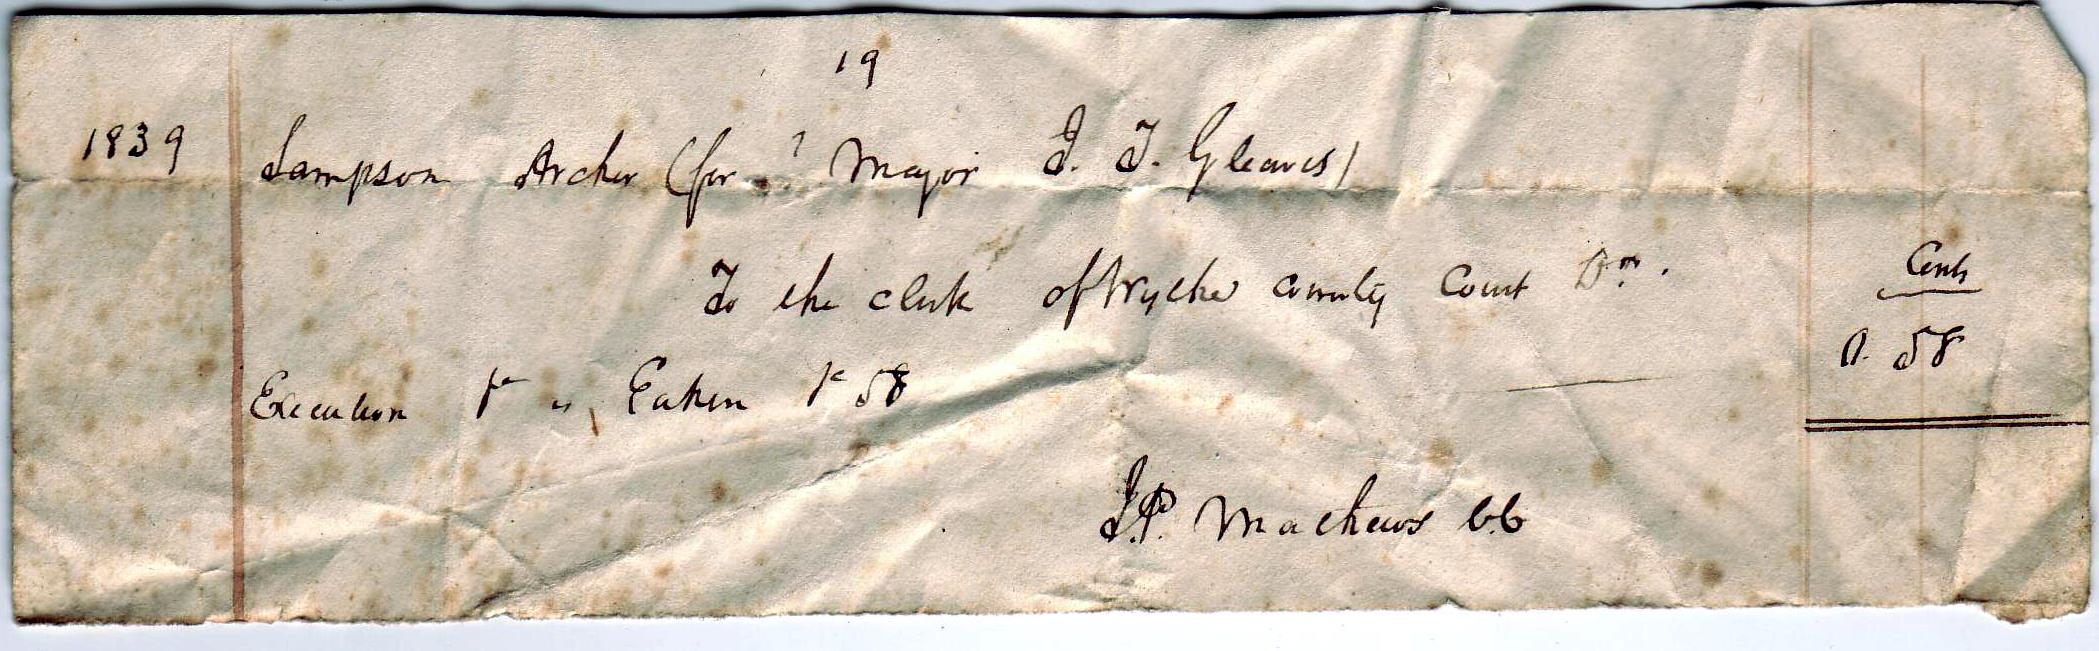 19
1839 Sampson Archer (for Major J. T. Gleaves)
To the clerk of Wythe county Court Dr.
Cents
Execution vs Eaken 58
58
J.P. Mathews CC